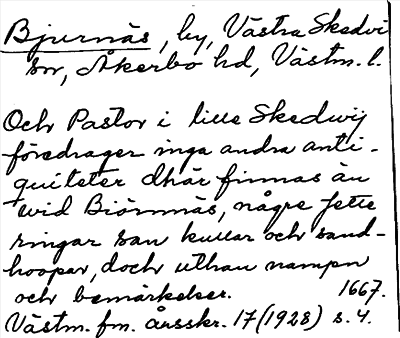 Bjurnäs, by, Västra Skedvi
sn, Åkerbo hd, Västm. l.
Och Pastor i lille Skedwij
föredrager inga andra anti-
quiteter dhär finnas än
wid Biörnnäs, någre jette
ringar san kullar och sand-
hoopar, doch uthan nampn
och bemärkelser. 1667.
Västm. fm. årsskr. 17 (1928) s. 4.